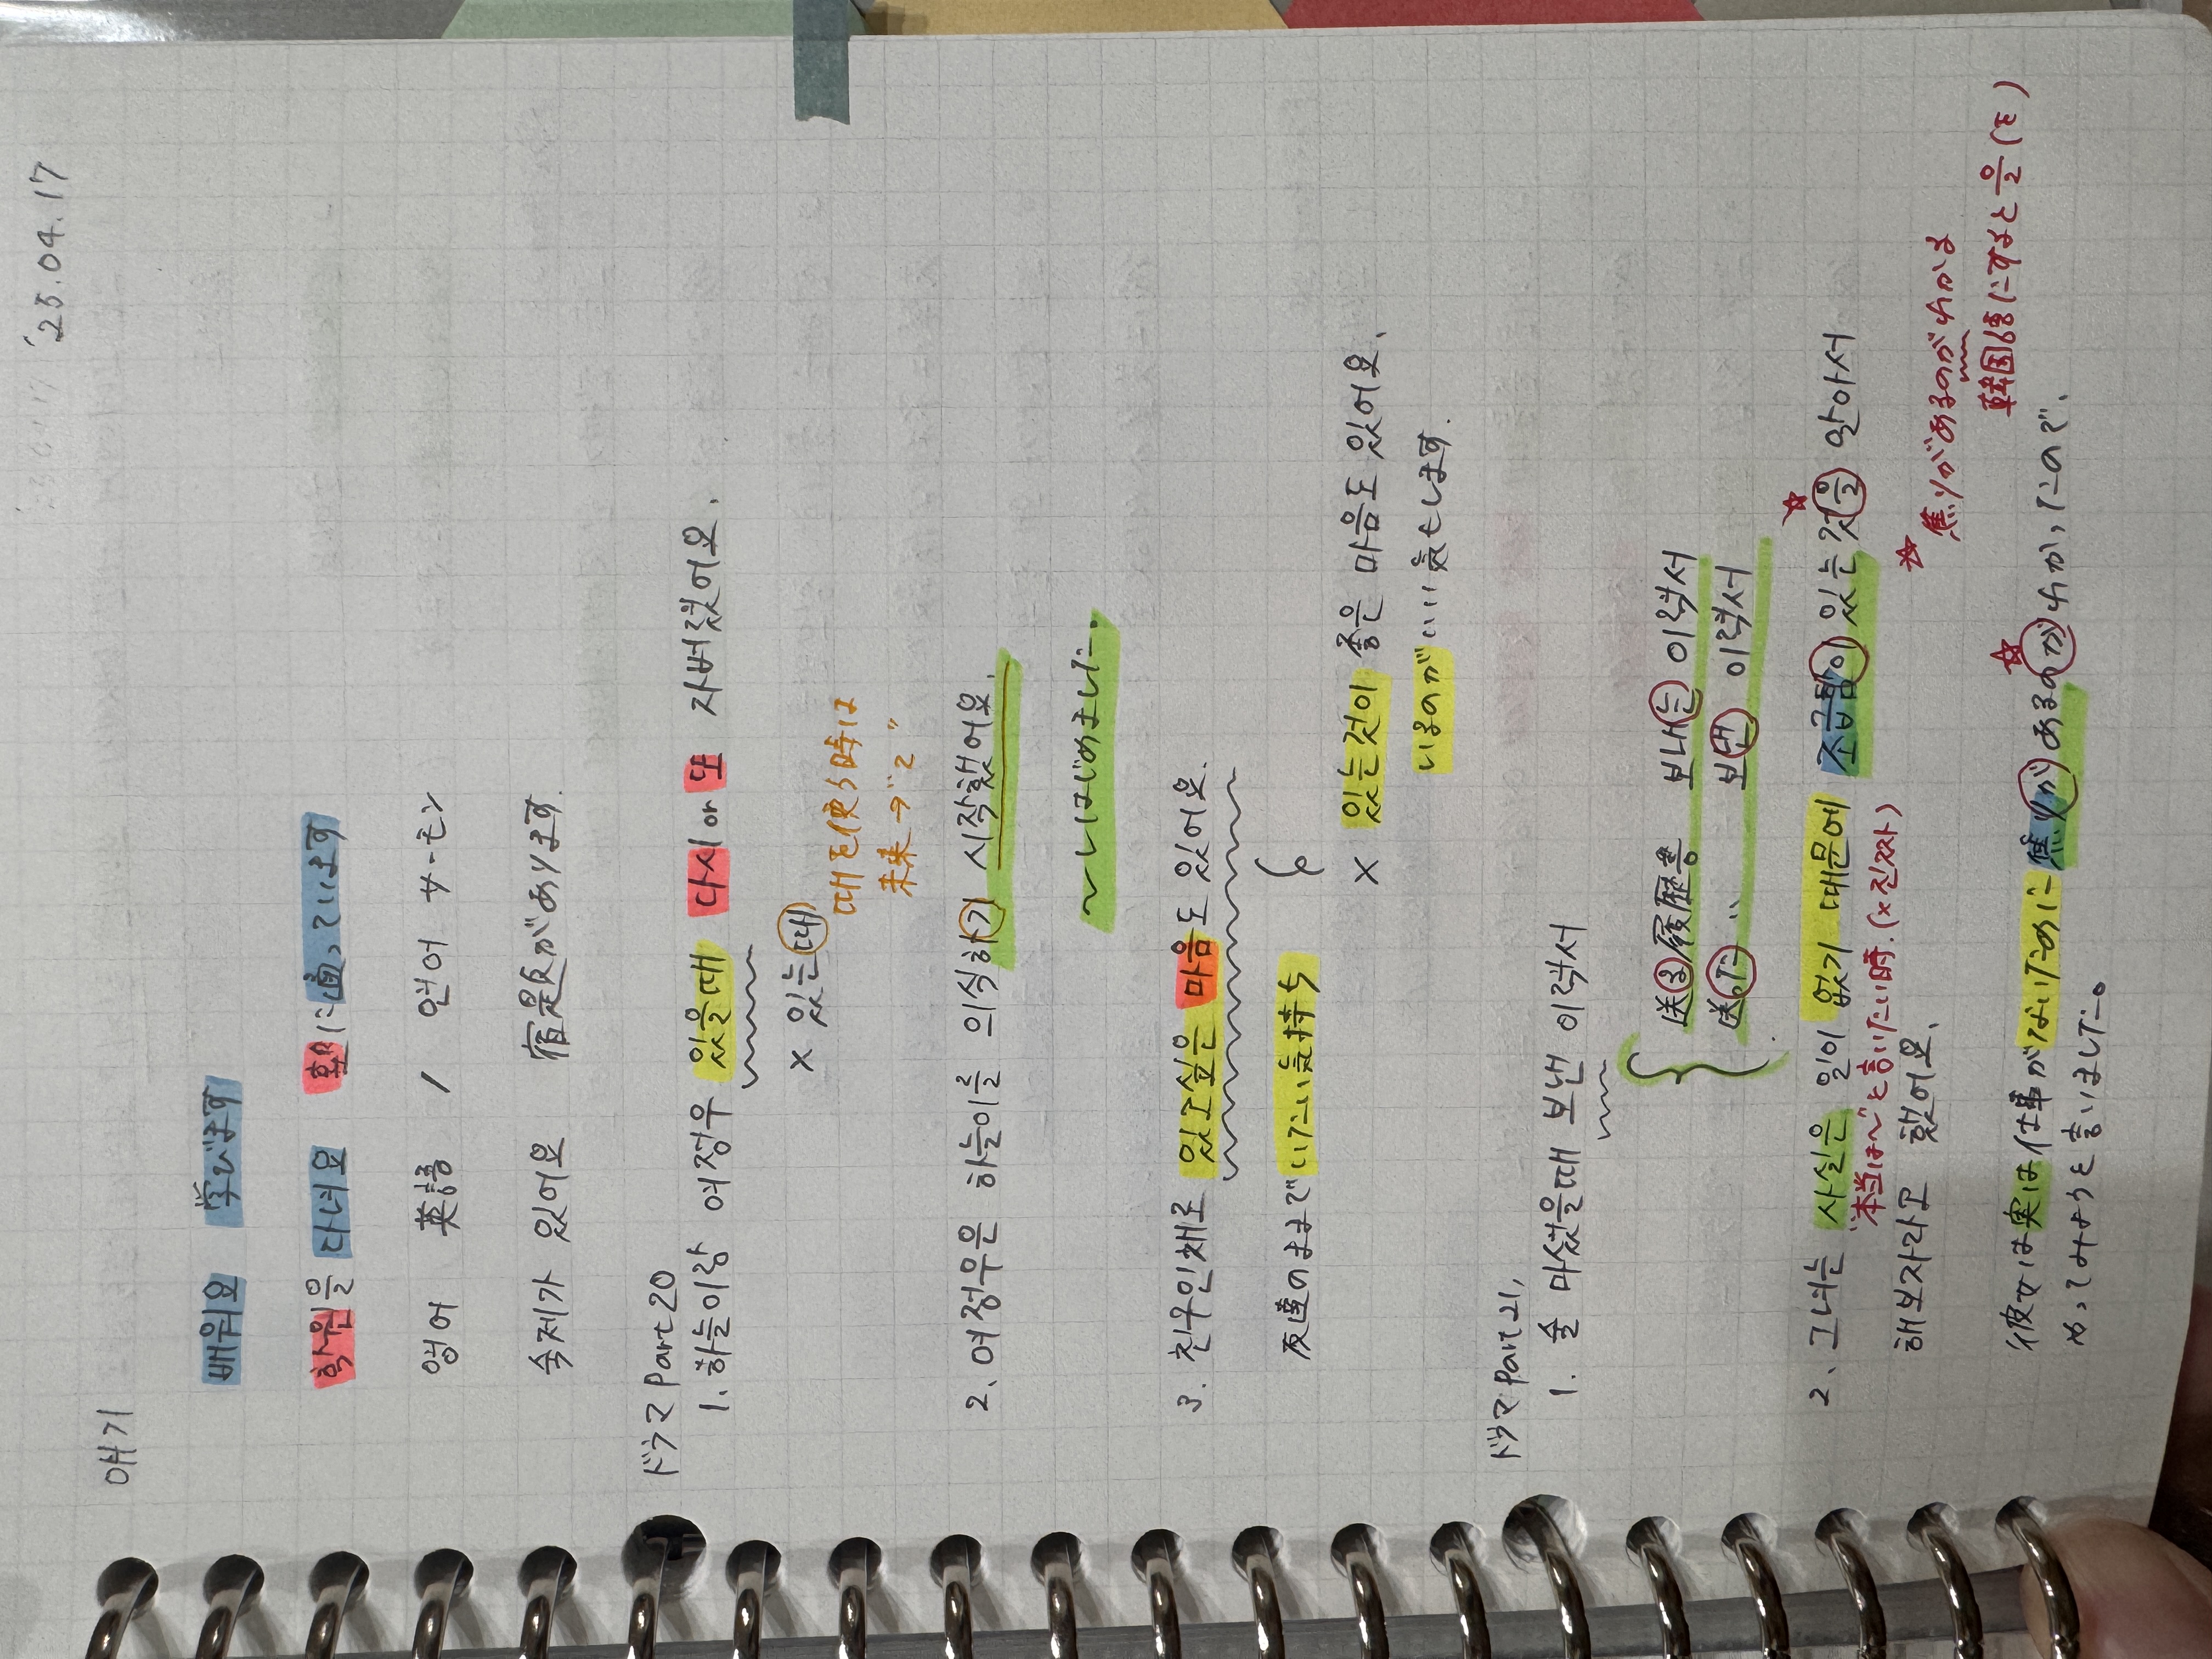 '25.04.17
얘기
배워요 学びます
학원을 다녀요 塾に通っています
영어 英語 / 언어
숙제가 있어요 宿題があります.
ドラマ Part 20
1. 하늘이랑 여정우 있을때 다시 or 또 자버렸어요.
× 있는때
때を使う時は
未来づこ"
2. 여정우은 하늘이를 의식하기 시작했어요.
〜しはじめました.
3. 친구인채로 있고싶은 마음도 있어요.
友達のままでいたい気持ち
× 있는것이 좋은 마음도 있어요.
いるのがいい気もします.
ドラマ Part 21,
1. 술 마셨을때 보낸 이력서
送る履歴書 보내는 이력서
送った 〃 보낸 이력서
2. 그녀는 사실은 일이 없기 때문에 조급함이 있는 것을 알아서
"本当は〜"と言いたい時.(×진짜)
해보자라고 했어요.
☆ 焦りがあるのがわかる
韓国語にすると을(を)
彼女は実は仕事がないために焦りがあるのがわかったので、
やってみようと言いました。